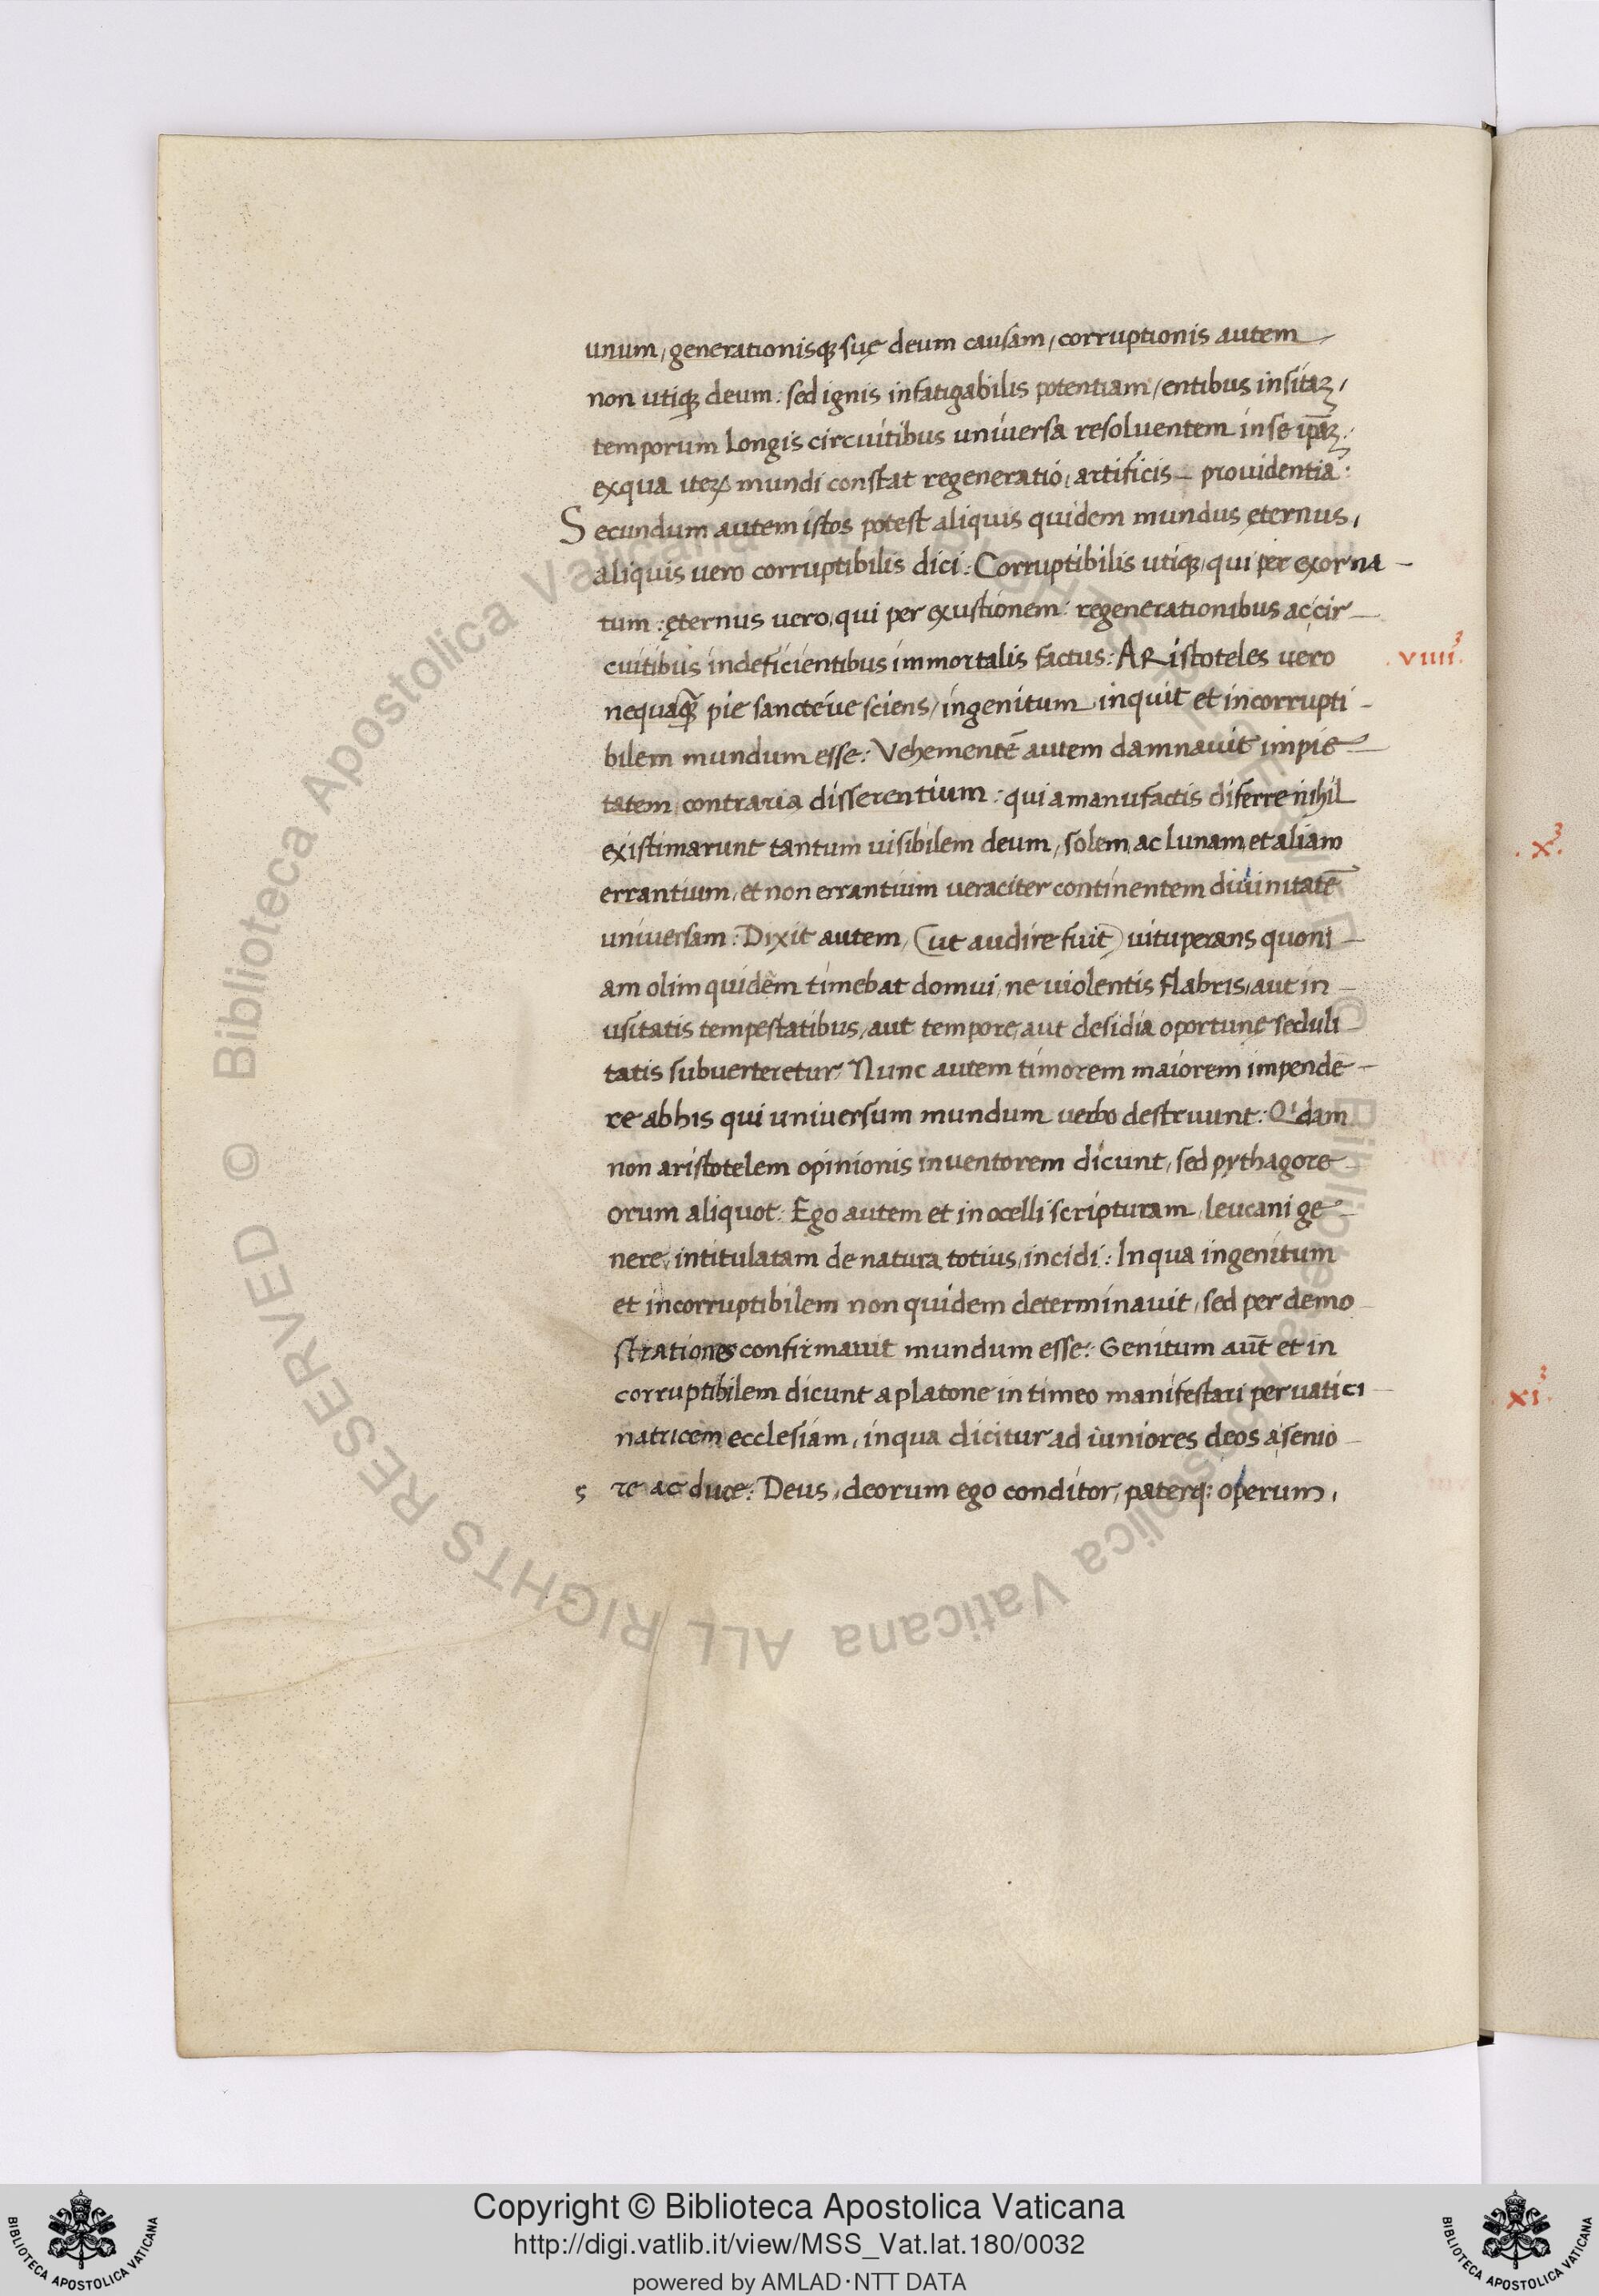 unum, generationisq; suę deum causam, corruptionis autem
non utiq; deum: sed ignis infatigabilis potentiam, entibus insitaꝫ,
temporum longis circuitibus universa resoluentem in se ip̄aꝫ:
exqua iteꝝ mundi constat regeneratio, artificis providentia:
Secundum autem istos potest aliquis quidem mundus ęternus,
aliquis vero corruptibilis dici: Corruptibilis utiq; qui per exorna
tum: ęternus vero, qui per exustionem: regenerationibus ac cir
cuitibus indeficientibus immortalis factus: ARistoteles vero
.viiii.
nequaq̄ pie sancteve sciens, ingenitum inquit et incorrupti
bilem mundum esse: Vehementē autem damnavit impie
tatem contraria disserentium: qui a manufactis diferre nihil
existimarunt tantum visibilem deum, solem, ac lunam, et aliam
.x.
errantium, et non errantium veraciter continentem divinitatē
universam: Dixit autem, (ut audire fuit) vituperans quoni
am olim quidem timebat domui, ne violentis flabris, aut in
usitatis tempestatibus, aut tempore, aut desidia oportunę seduli
tatis subverteretur, Nunc autem timorem maiorem impende
re ab his qui universum mundum verbo destruunt: Qidam
non aristotelem opinionis inventorem dicunt, sed pythagore
orum aliquot: Ego autem et in ocelli scripturam, leucani ge
nere, intitulatam de natura totius, incidi: In qua ingenitum
et incorruptibilem non quidem determinavit, sed per demo
strationes confirmavit mundum esse: Genitum aūt et in
corruptibilem dicunt a platone in timeo manifestari per vatici
xi.
natricem ecclesiam, in qua dicitur ad iuniores deos a senio
s re ac duce: Deus, deorum ego conditor, paterq: operum,
Copyright © Biblioteca Apostolica Vaticana
http://digi.vatlib.it/view/MSS_Vat.lat.180/0032
powered by AMLAD·NTT DATA
BIBLIOTECA APOSTOLICA VATICANA
BIBLIOTECA APOSTOLICA VATICANA
© Biblioteca Apostolica Vaticana ALL RIGHTS RESERVED © Biblioteca Apostolica Vaticana ALL RIGHTS RESERVED